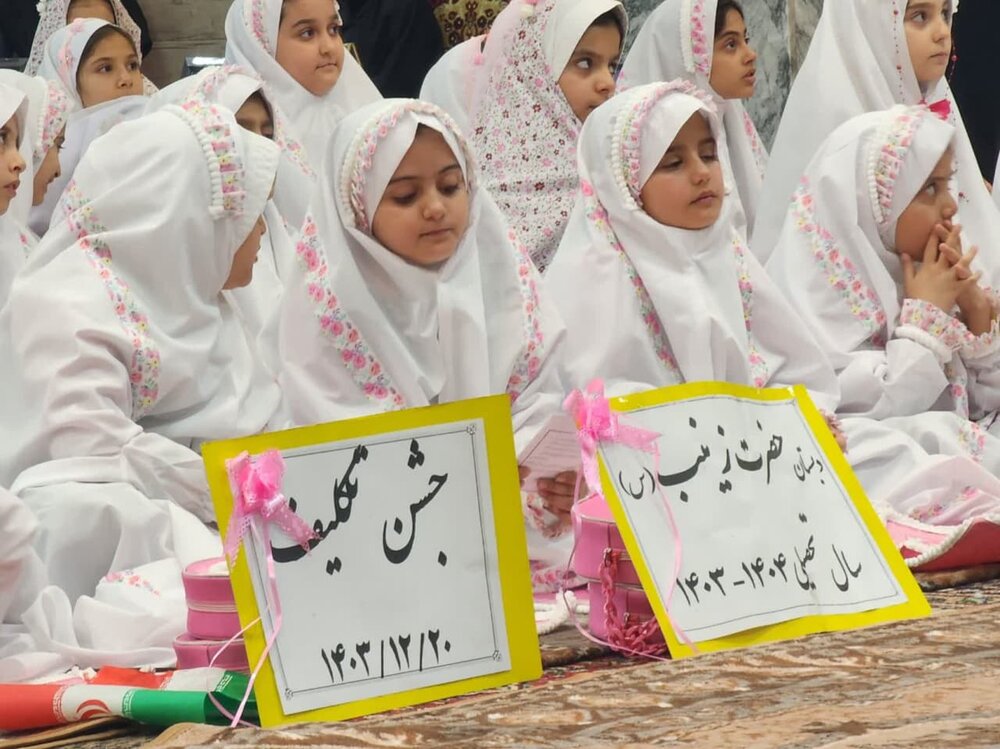 جشن تکلیف
۱۴۰۳/۱۲/۲۰
دبستان حضرت زینب (س)
سال تحصیلی ۱۴۰۴-۱۴۰۳